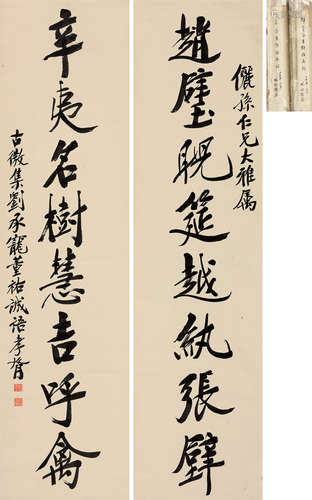 趙璧貺筵越紈張
儷孫仁兄大雅属
辛夷名樹慧吉呼禽
古微集劉承寵董祐誠語孝胥